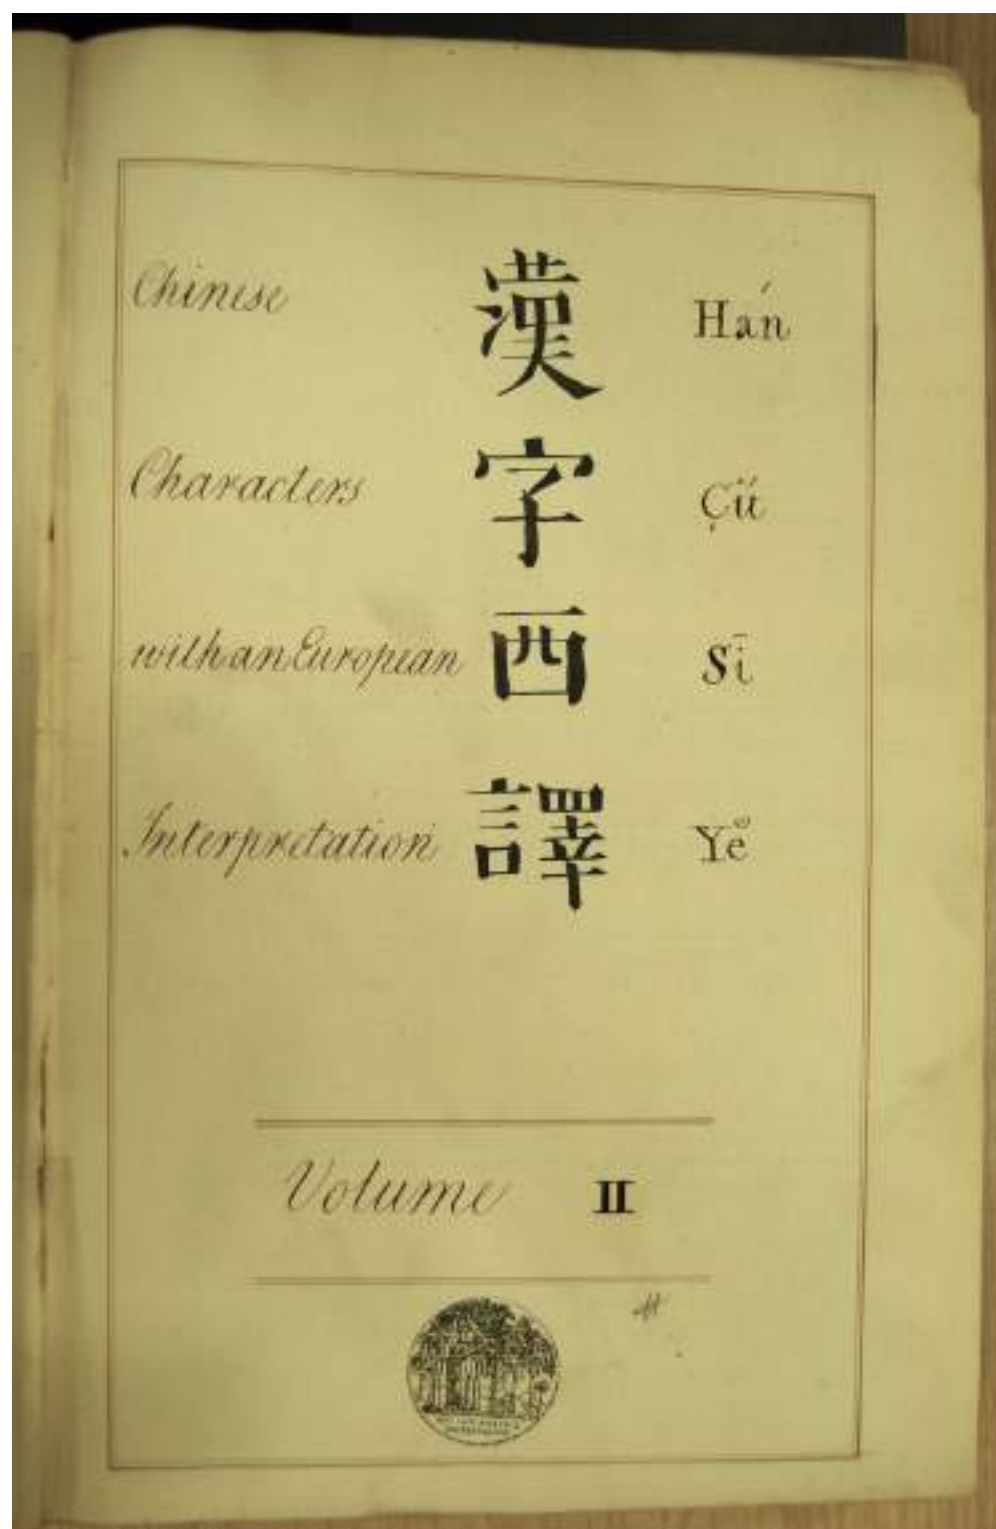 Chinese 漢 Hán
Characters 字 Çű
with an European 西 Sī
Interpretation 譯 Yĕ
Volume II